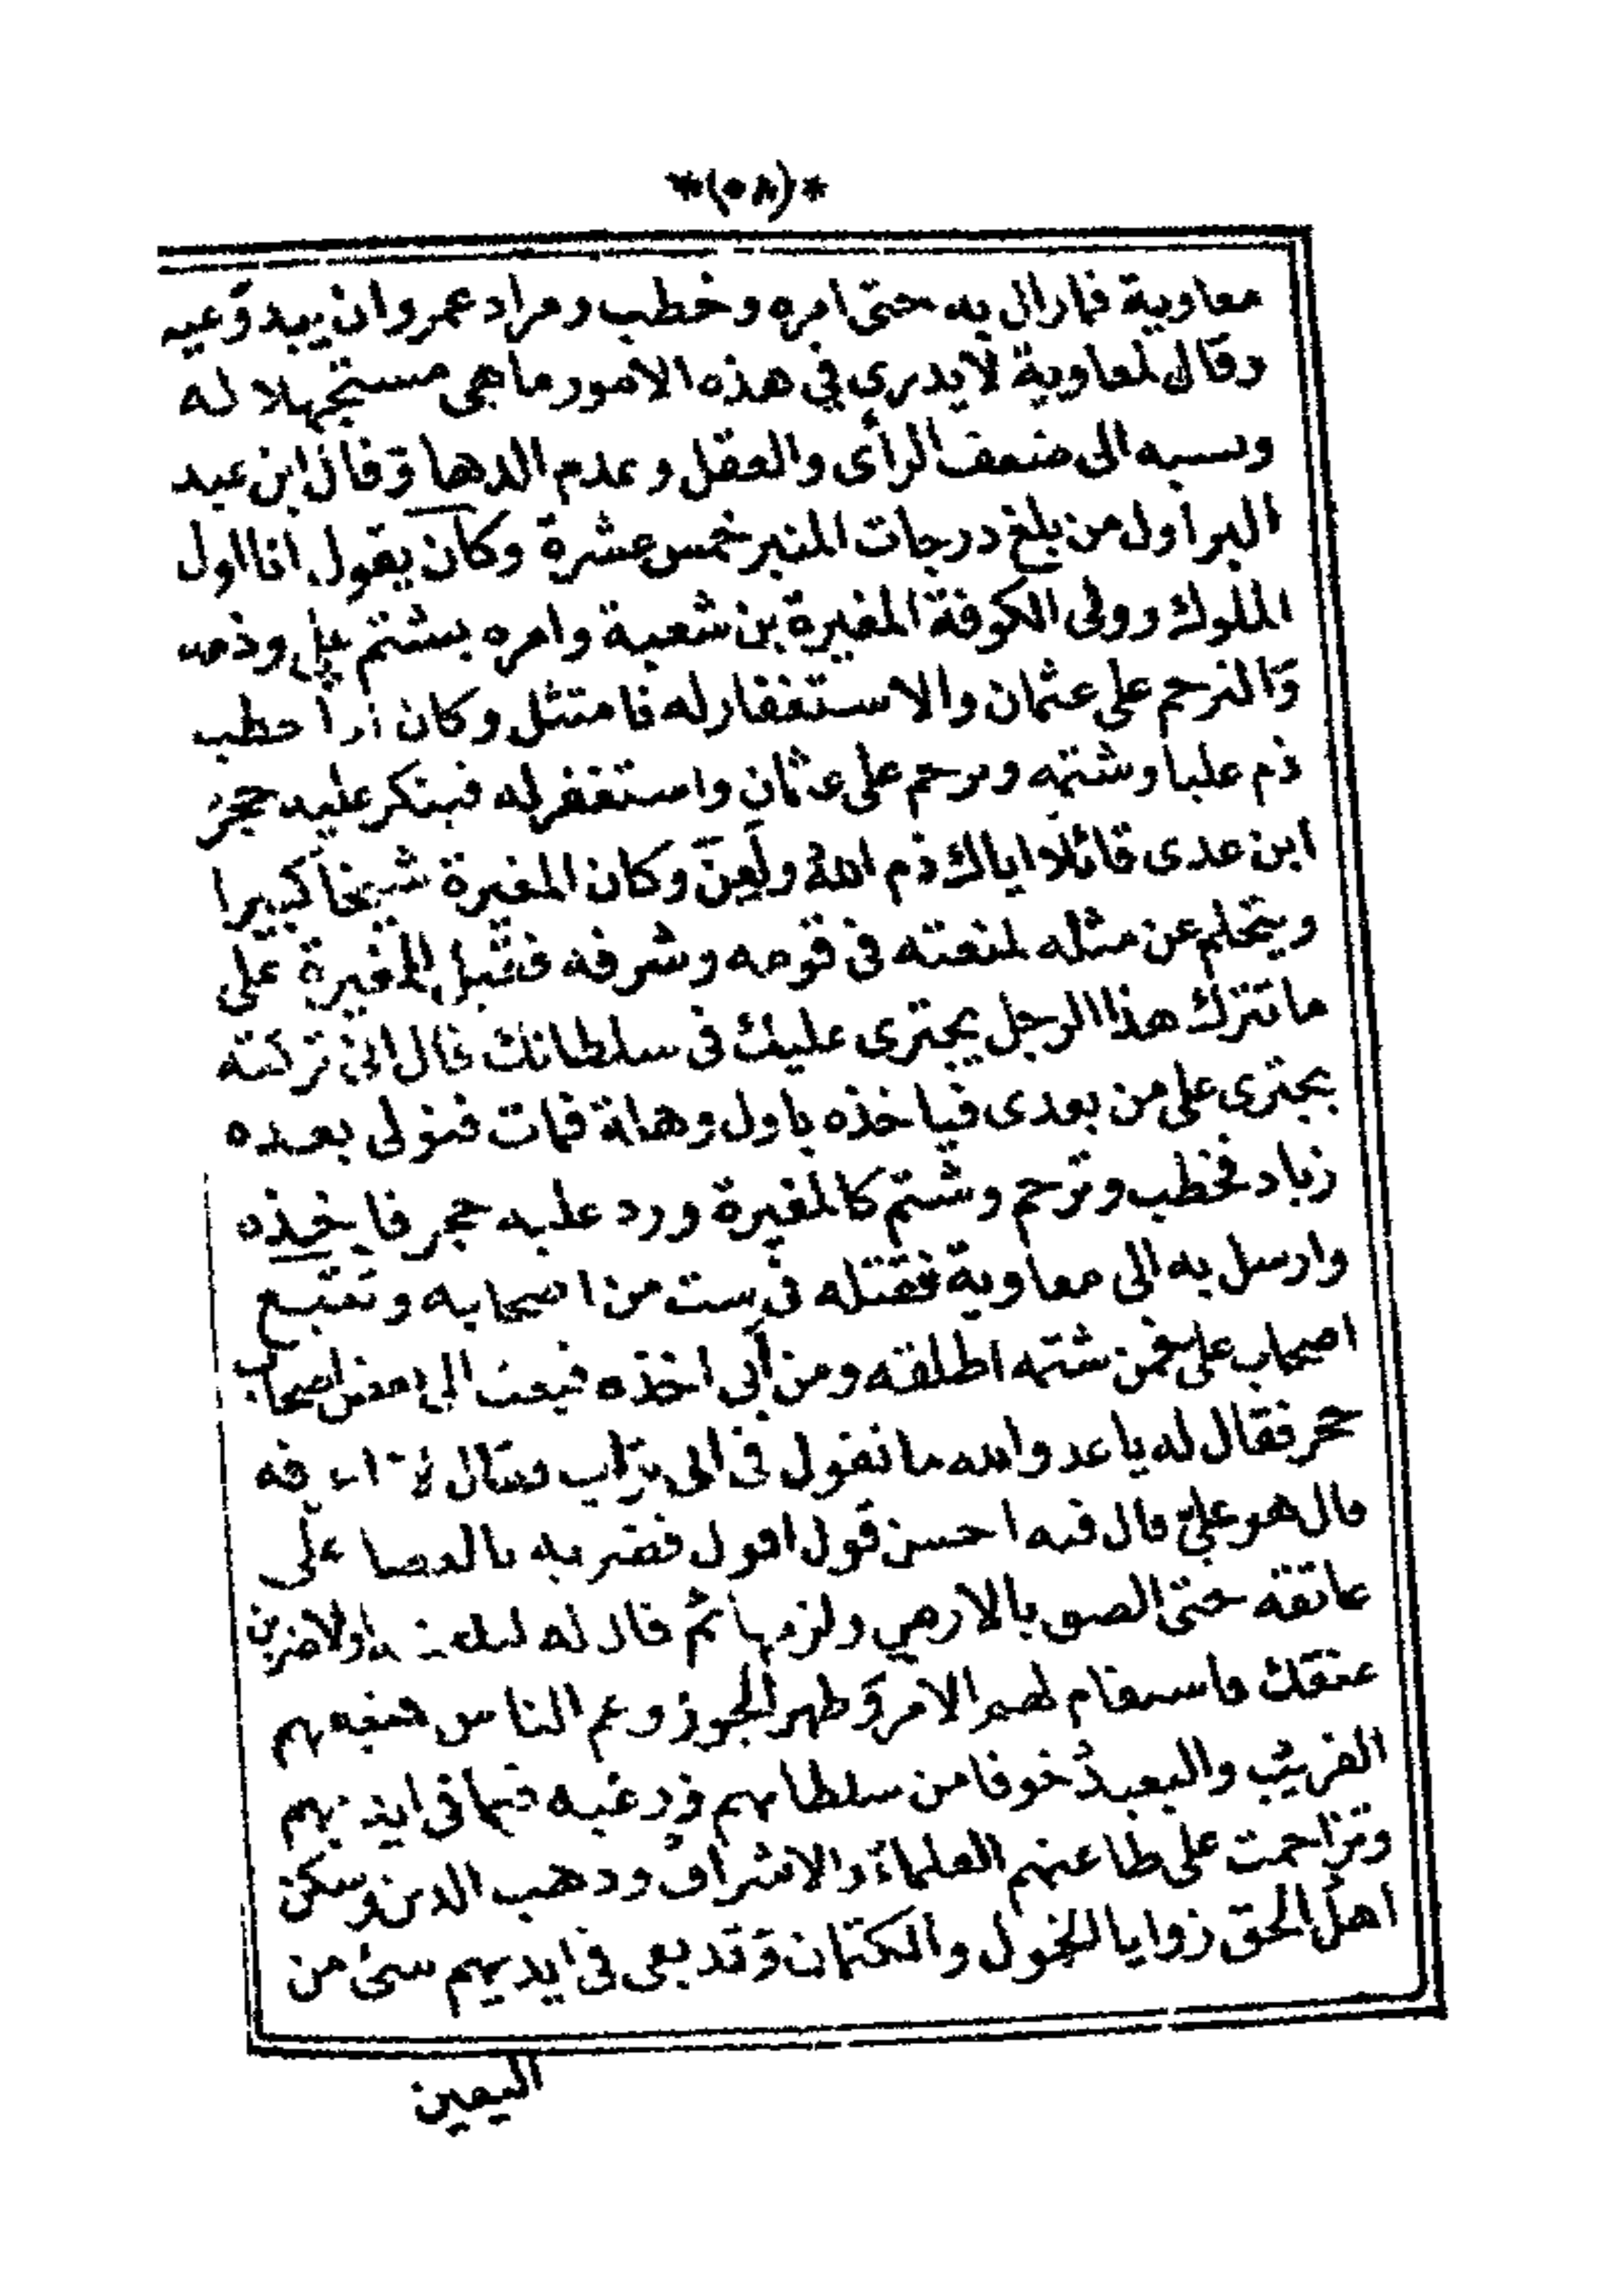 *(٥٨)*
معاوية فمازال به حتى امره وخطب ومراد عمروان يبدوعيه
وقال لمعاوية لايدرى في هذه الامور ماهى مستجهلا له
ونسبه الى ضعف الرأى والعقل وعدم الدها وقال ابن عبد
البر اول من بلغ درجات المنبر خمس عشرة وكان يقول انا اول
الملوك وولى الكوفة المغيرة بن شعبة وامره بشتم على وذمه
والترحم على عثمان والاستغفار له فامتثل وكان اذا خطب
ذم عليا وشتمه وترحم على عثمان واستغفر له فينكر عليه حجر
ابن عدى قائلا اياك ذم الله ولعن وكان المغيرة شيخا كبيرا
ويتحلم عن مثله لمنعته فى قومه وشرفه فقيل للمغيرة على
ما تترك هذا الرجل يجترى عليك فى سلطانك قال انى تركته
يجترى على من بعدى فياخذه باول وهلة فمات فتولى بعده
زياد فخطب وترحم وشتم كالمغيرة ورد عليه حجر فاخذه
وارسل به الى معاوية فقتله فى ست من اصحابه وتتبع
اصحاب على فمن شتمه اطلقه ومن أبى اخذه فبعث الى بعض اصحاب
حجر فقال له يا عدو الله ما تقول فى ابى تراب فقال لا فه
قال هو على قال فيه احسن قول اقول فضربه بالعصا على
عاتقه حتى الصق بالارض ولزمها ثم قال له اولاضربن
عنقك فاستقام لهم الامر وظهر الجور وعم الناس فتبعهم
القريب والبعيد خوفا من سلطانهم ورغبه فيما فى ايديهم
وتزاحمت على طاعتهم العلماء والاشراف وذهب الدين وسكن
اهل الحق زوايا الخمول والكتمان وقد بقى فى ايديهم شئ من
اليمين